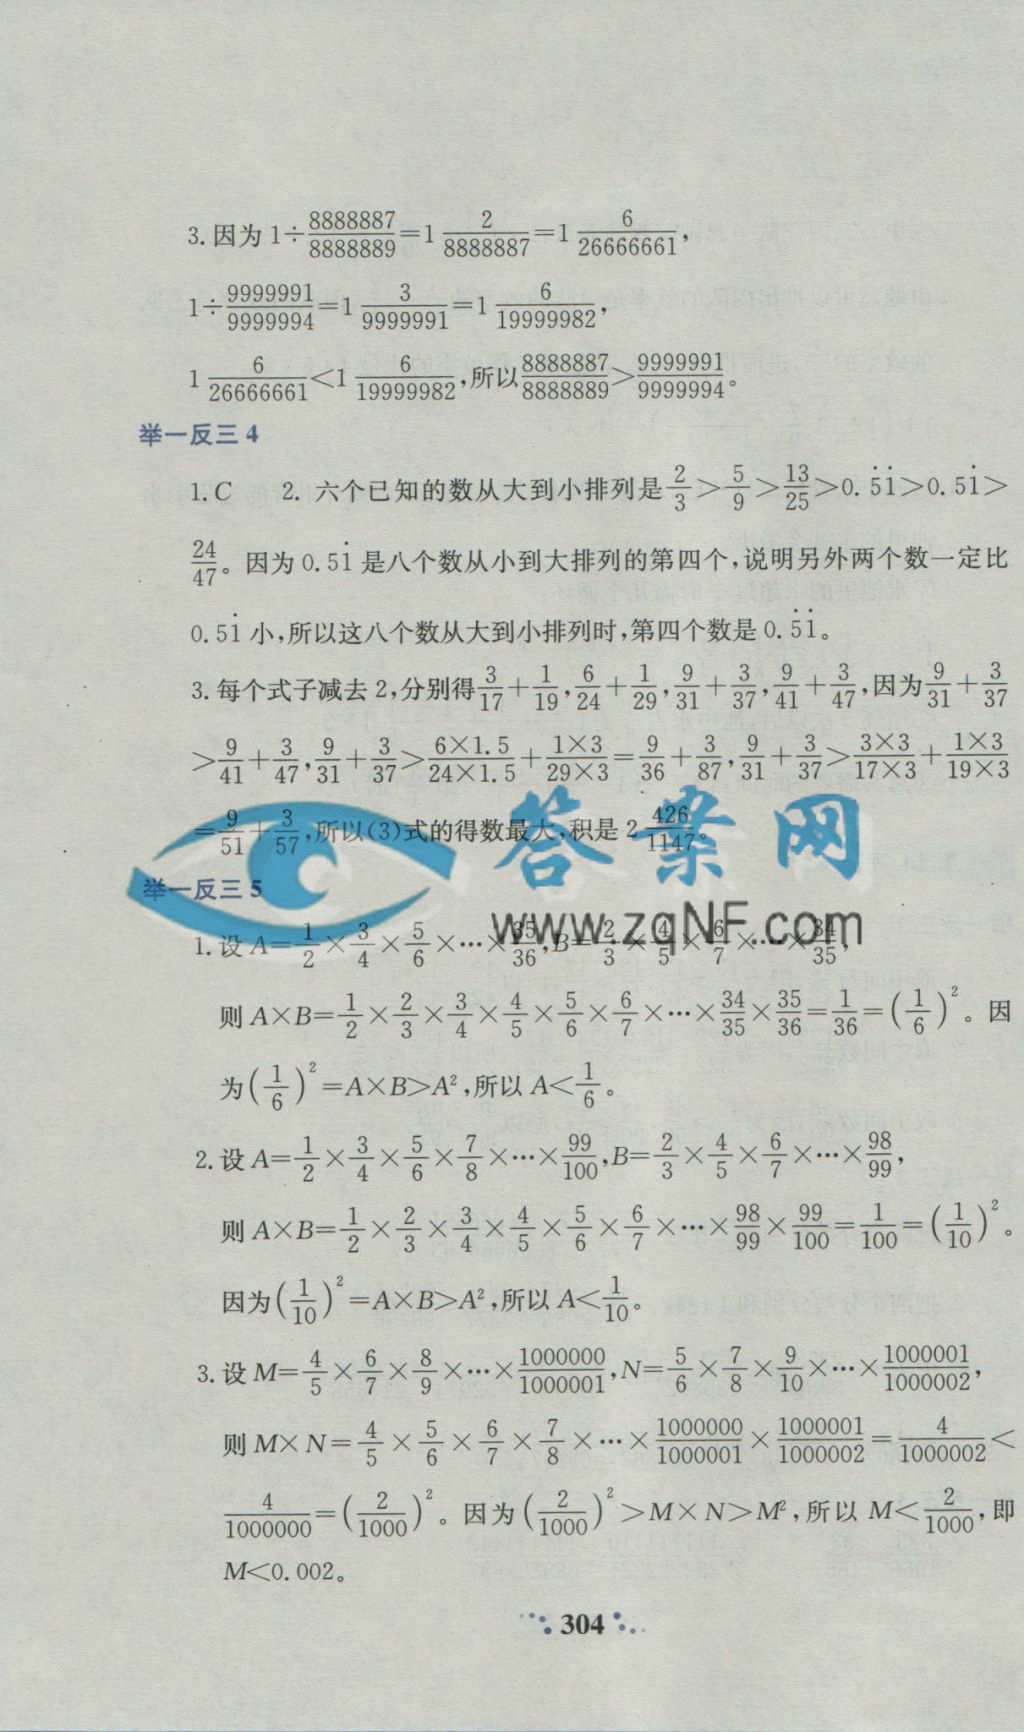 3.因为1÷8888887/8888889=1 2/8888887=1 6/26666661,
1÷9999991/9999994=1 3/9999991=1 6/19999982,
1 6/26666661<1 6/19999982,所以8888887/8888889>9999991/9999994。
举一反三4
1.C 2. 六个已知的数从大到小排列是2/3>5/9>13/25>0.5̇1̇>0.51̇>
24/47。因为0.51̇是八个数从小到大排列的第四个,说明另外两个数一定比
0.51̇小,所以这八个数从大到小排列时,第四个数是0.5̇1̇。
3.每个式子减去2,分别得3/17+1/19,6/24+1/29,9/31+3/37,9/41+3/47,因为9/31+3/37
>9/41+3/47,9/31+3/37>6×1.5/24×1.5+1×3/29×3=9/36+3/87,9/31+3/37>3×3/17×3+1×3/19×3
=9/51+3/57,所以(3)式的得数最大,积是2 426/1147。
答案网
举一反三5
www.zqNF.com
1.设A=1/2×3/4×5/6×…×35/36,B=2/3×4/5×6/7×…×34/35,
则A×B=1/2×2/3×3/4×4/5×5/6×6/7×…×34/35×35/36=1/36=(1/6)²。因
为(1/6)²=A×B>A²,所以A<1/6。
2.设A=1/2×3/4×5/6×7/8×…×99/100,B=2/3×4/5×6/7×…×98/99,
则A×B=1/2×2/3×3/4×4/5×5/6×6/7×…×98/99×99/100=1/100=(1/10)²。
因为(1/10)²=A×B>A²,所以A<1/10。
3.设M=4/5×6/7×8/9×…×1000000/1000001,N=5/6×7/8×9/10×…×1000001/1000002,
则M×N=4/5×5/6×6/7×7/8×…×1000000/1000001×1000001/1000002=4/1000002<
4/1000000=(2/1000)²。因为(2/1000)²>M×N>M²,所以M<2/1000,即
M<0.002。
304